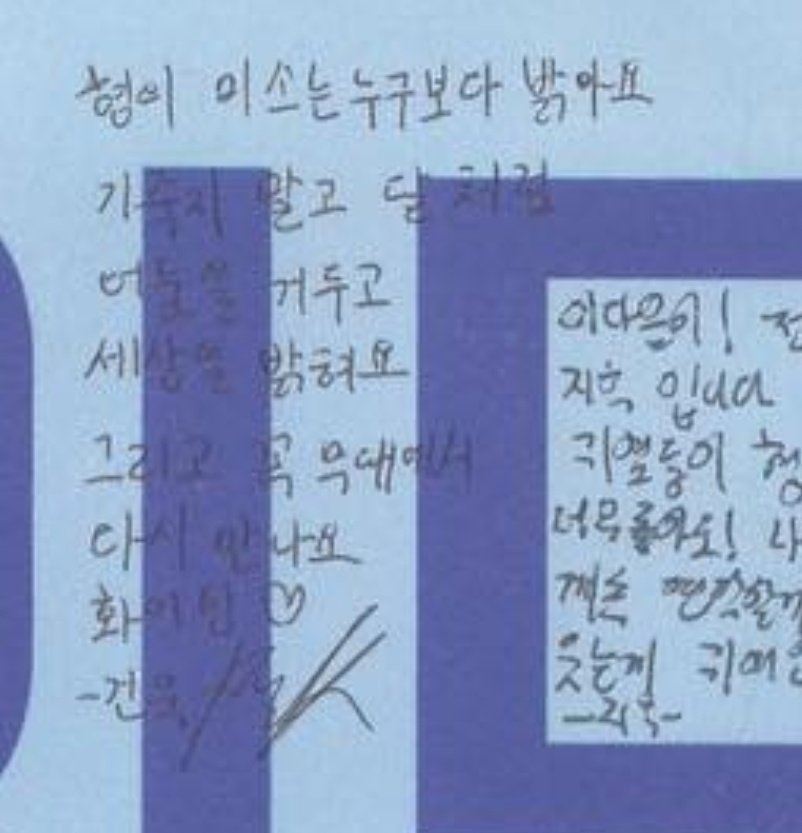 형이 미소는 누구보다 밝아요
기죽지 말고 달 처럼
어둠을 거두고
세상을 밝혀요
그리고 꼭 무대에서
다시 만나요
화이팅 ♡
-건욱
이다을이! 전
지윽 입니다
귀염둥이 형
너무 좋아요! 나
계속 연락할게
웃는게 귀여운